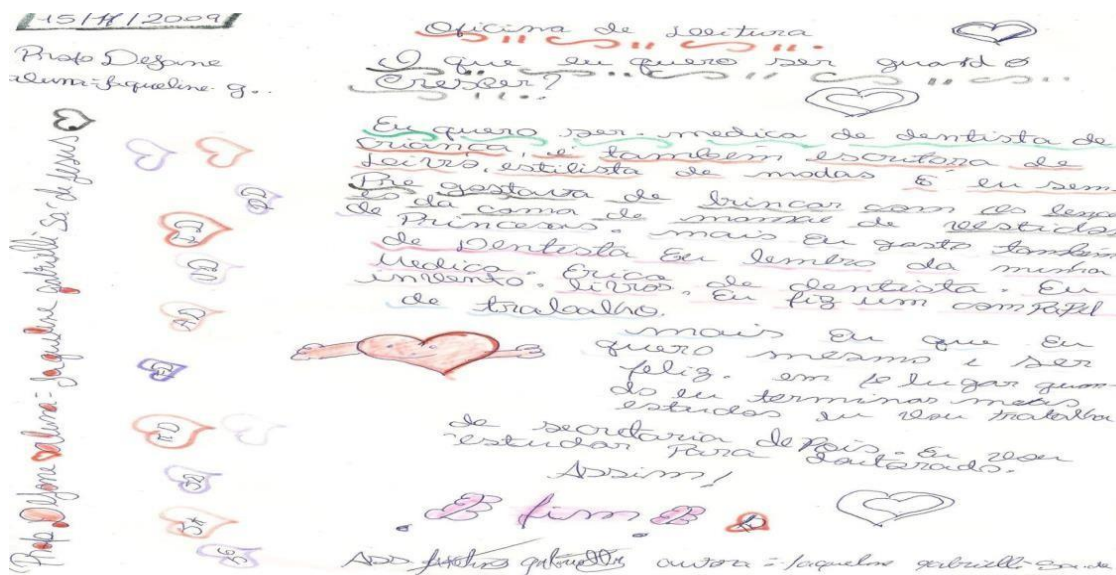 15/11/2009
Profo Dejane
aluna=Jaqueline. g..
Oficina de Leitura
O que eu quero ser quando
Crescer?
Eu quero ser. medica de dentista de
criança, e também escritora de
Leivro, estilista de modas E eu sem
Pre gostava de brincar com os lenço
es da cama de mamãe de vestidos
de Princesas. mais Eu gosto também
de Dentista Eu lembro da minha
Medica Erica de dentista. Eu
invento. livros, Eu fiz um com Papel
de trabalho.
mais Eu que Eu
quero mesmo é ser
feliz. em 1º lugar quan-
do eu terminar meus
estudos eu vou trabalha
de secretaria depois. Eu vou
estudar Para doutorado.
Assim!
fim
Ass autora = Jaqueline gabrielli Sa de
Profo Dejane aluna= Jaqueline gabrielli Sá de Jesus